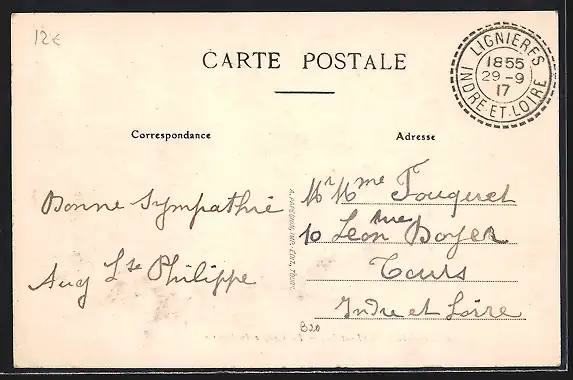 12€
CARTE POSTALE
LIGNIERES
1855
29-9
17
INDRE-ET-LOIRE
Correspondance
Adresse
Bonne Sympathie
Aug Lse Philippe
Mr Mme Fougeret
10 rue Léon Boyer
Tours
Indre et Loire
B20